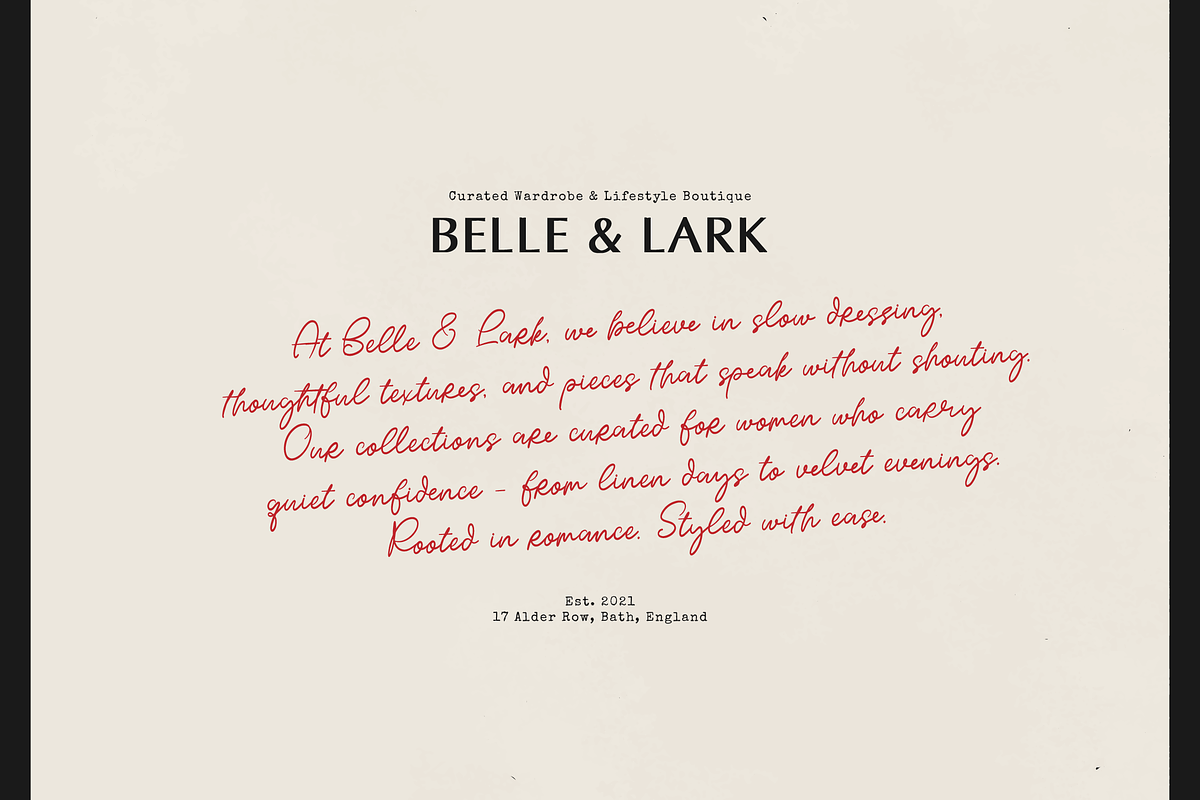 Curated Wardrobe & Lifestyle Boutique
BELLE & LARK
At Belle & Lark, we believe in slow dressing,
thoughtful textures, and pieces that speak without shouting.
Our collections are curated for women who carry
quiet confidence - from linen days to velvet evenings.
Rooted in romance. Styled with ease.
Est. 2021
17 Alder Row, Bath, England